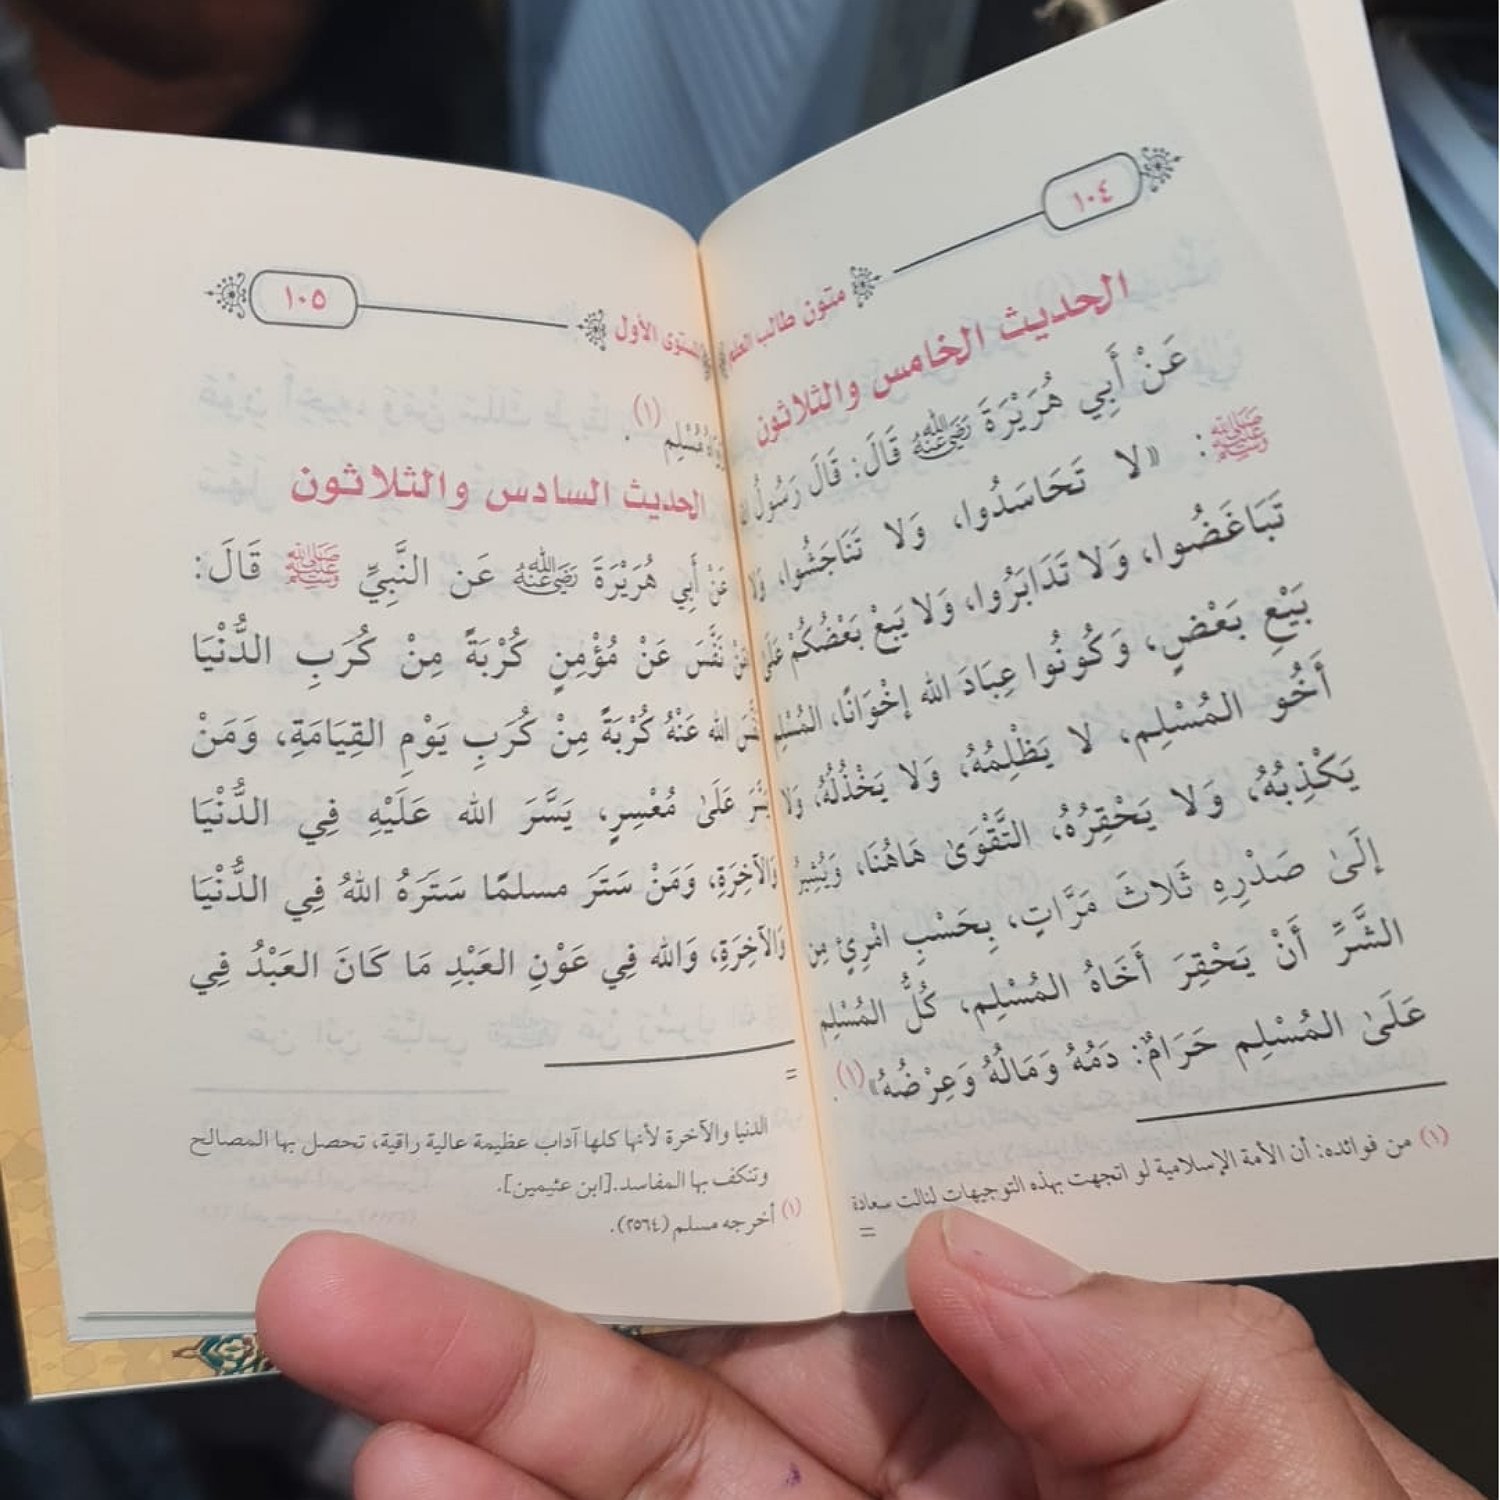 ١٠٤
متون طالب العلم
الحديث الخامس والثلاثون
عَنْ أَبِي هُرَيْرَةَ رَضِيَ اللَّهُ عَنْهُ قَالَ: قَالَ رَسُولُ الله
ﷺ: «لا تَحَاسَدُوا، وَلا تَنَاجَشُوا، وَلا
تَبَاغَضُوا، وَلا تَدَابَرُوا، وَلا يَبِعْ بَعْضُكُمْ عَلَى
بَيْعِ بَعْضٍ، وَكُونُوا عِبَادَ الله إخْوَانًا، المُسْلِم
أَخُو المُسْلِم، لا يَظْلِمُهُ، وَلا يَخْذُلُهُ، وَلا
يَكْذِبُهُ، وَلا يَحْقِرُهُ، التَّقْوَىٰ هَاهُنَا، وَيُشِيرُ
إلَىٰ صَدْرِهِ ثَلاثَ مَرَّاتٍ، بِحَسْبِ امْرِئٍ مِن
الشَّرِّ أَنْ يَحْقِرَ أَخَاهُ المُسْلِم، كُلُّ المُسْلِم
عَلَىٰ المُسْلِم حَرَامٌ: دَمُهُ وَمَالُهُ وَعِرْضُهُ»(١).
(١) من فوائده: أن الأمة الإسلامية لو اتجهت بهذه التوجيهات لنالت سعادة
=
١٠٥
المستوى الأول
رَوَاهُ مُسْلِم(١).
الحديث السادس والثلاثون
عَنْ أَبِي هُرَيْرَةَ رَضِيَ اللَّهُ عَنْهُ عَن النَّبِيِّ ﷺ قَالَ:
مَنْ نَفَّسَ عَنْ مُؤْمِنٍ كُرْبَةً مِنْ كُرَبِ الدُّنْيَا
نَفَّسَ الله عَنْهُ كُرْبَةً مِنْ كُرَبِ يَوْمِ القِيَامَةِ، وَمَنْ
يَسَّرَ عَلَىٰ مُعْسِرٍ، يَسَّرَ الله عَلَيْهِ فِي الدُّنْيَا
وَالآخِرَةِ، وَمَنْ سَتَرَ مسلمًا سَتَرَهُ اللهُ فِي الدُّنْيَا
وَالآخِرَةِ، وَالله فِي عَوْنِ العَبْدِ مَا كَانَ العَبْدُ فِي
=
الدنيا والآخرة لأنها كلها آداب عظيمة عالية راقية، تحصل بها المصالح
وتنكف بها المفاسد.[ابن عثيمين].
(١) أخرجه مسلم (٢٥٦٤).